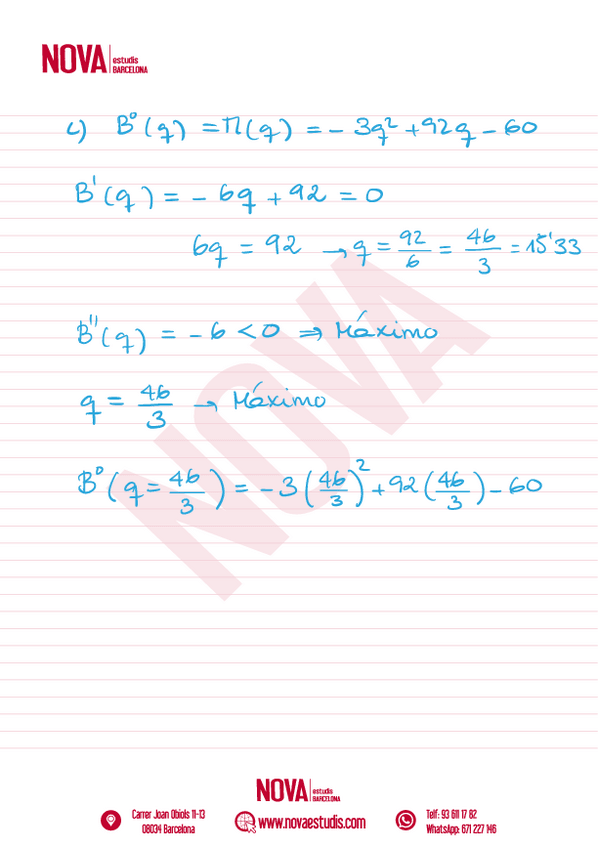 NOVA estudis BARCELONA
c) Bº(q) = Π(q) = - 3q² + 92q - 60
B'(q) = - 6q + 92 = 0
6q = 92 → q = 92/6 = 46/3 = 15'33
B''(q) = - 6 < 0 ⇒ Máximo
q = 46/3 → Máximo
Bº(q = 46/3) = - 3(46/3)² + 92(46/3) - 60
NOVA
NOVA estudis BARCELONA
Carrer Joan Obiols 11-13
08034 Barcelona
www.novaestudis.com
Telf: 93 611 17 82
WhatsApp: 671 227 146